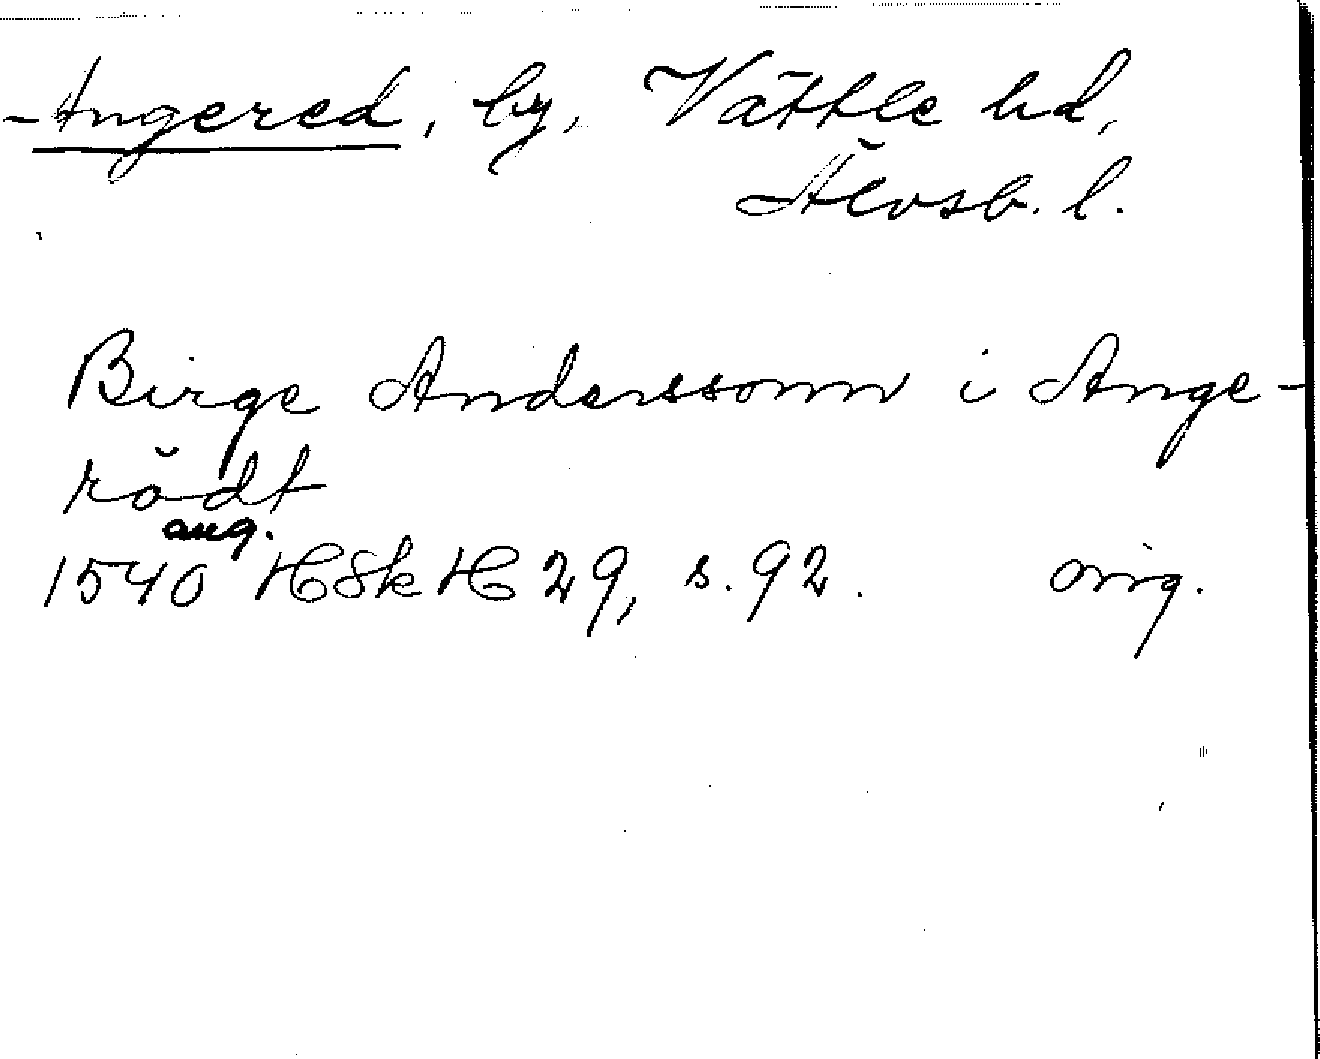 Angered, by, Vättle hd,
Älvsb. l.
Birge Anderssonn i Ange-
rödt
aug.
1540 HSkH 29, s. 92. orig.